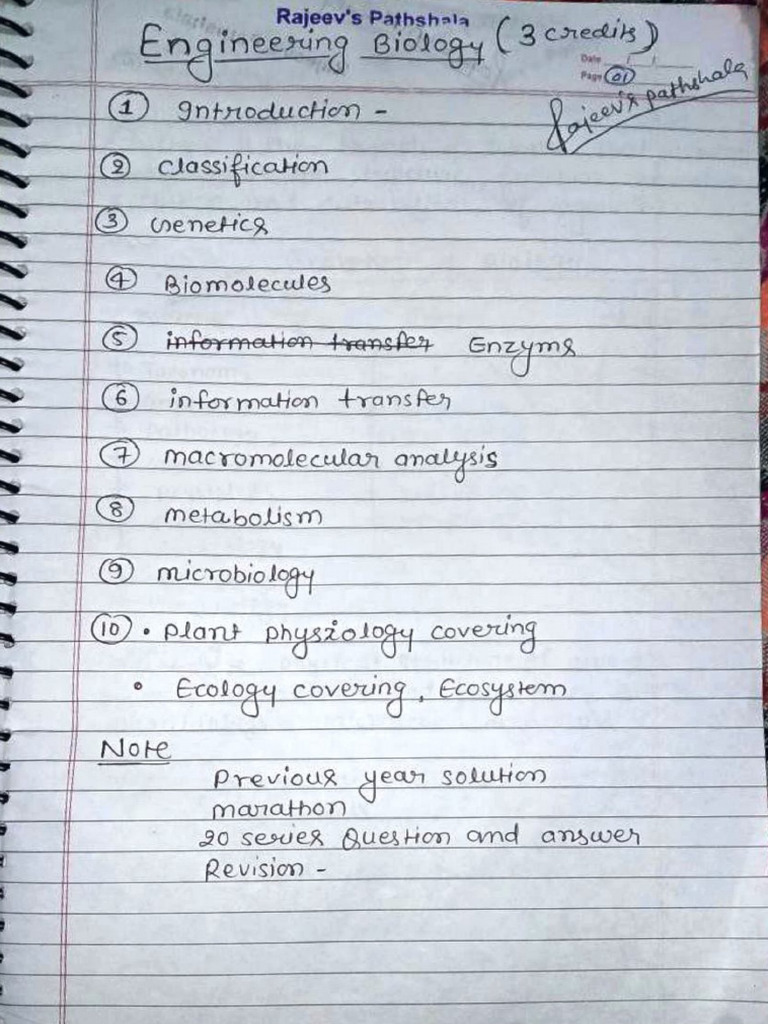 Rajeev's Pathshala
Engineering Biology (3 credits)
Date / /
Page 01
Rajeev's pathshala
① Introduction -
② Classification
③ Genetics
④ Biomolecules
⑤ information transfer Enzyms
⑥ information transfer
⑦ macromolecular analysis
⑧ metabolism
⑨ microbiology
⑩ • Plant physiology covering
• Ecology covering, Ecosystem
Note
Previous year solution
marathon
20 series Question and answer
Revision -